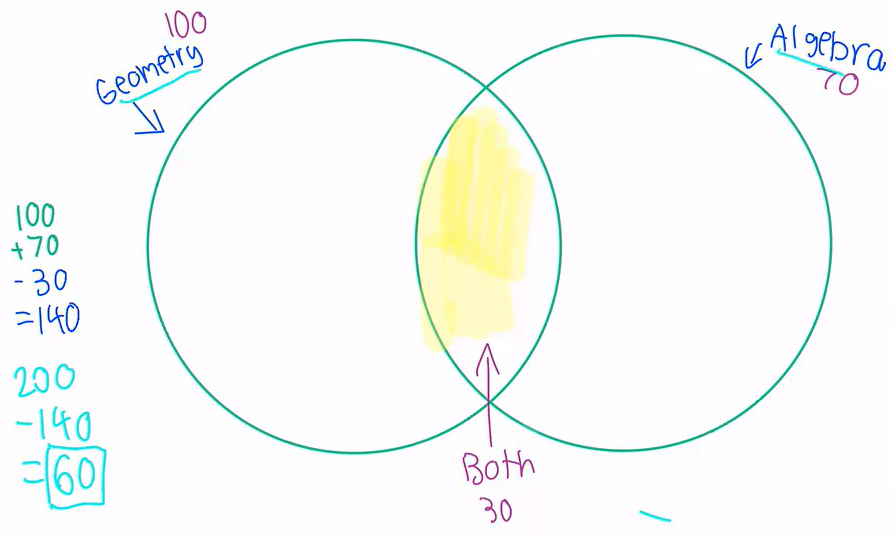 100
Geometry
Algebra
70
100
+70
-30
=140
200
-140
=60
Both
30